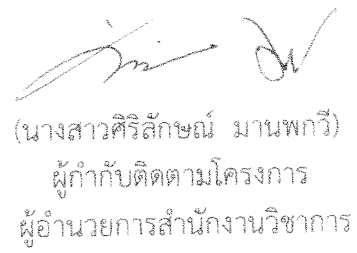 (นางสาวศิริลักษณ์ มานพกวี)
ผู้กำกับติดตามโครงการ
ผู้อำนวยการสำนักงานวิชาการ